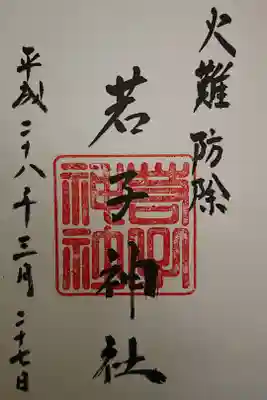 火難防除
若子神社
若子神社
平成二十八年三月二十七日